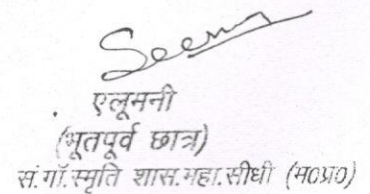 Seema
एलूमनी
(भूतपूर्व छात्र)
सं.गाँ.स्मृति शास.महा.सीधी (म०प्र०)